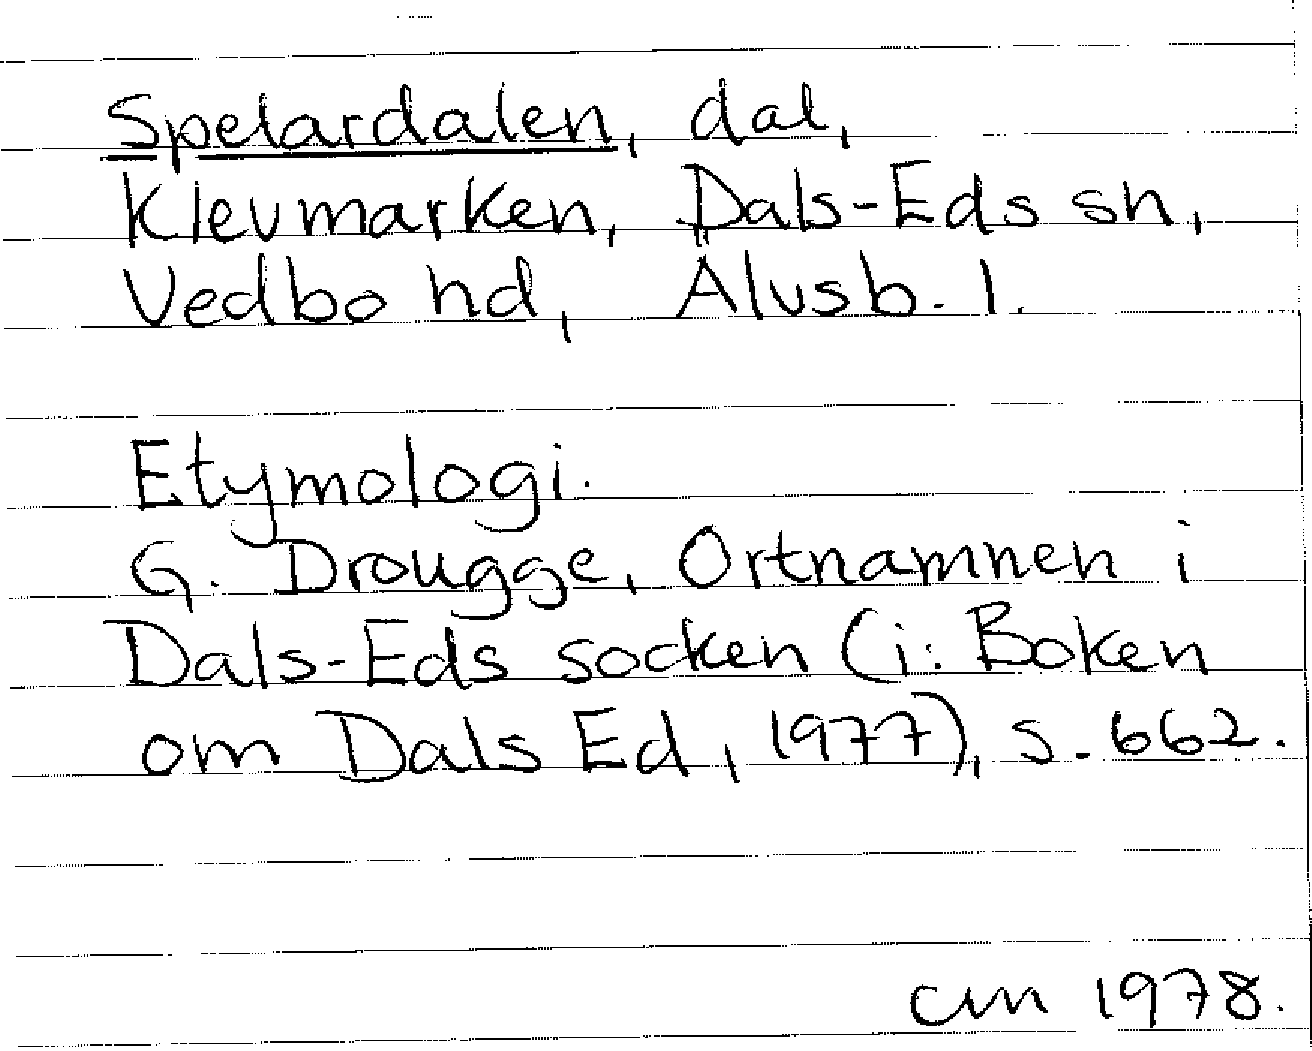 Spelardalen, dal,
Klevmarken, Dals-Eds sn,
Vedbo hd, Älvsb. l.
Etymologi.
G. Drougge, Ortnamnen i
Dals-Eds socken (i: Boken
om Dals Ed, 1977), s. 662.
cm 1978.